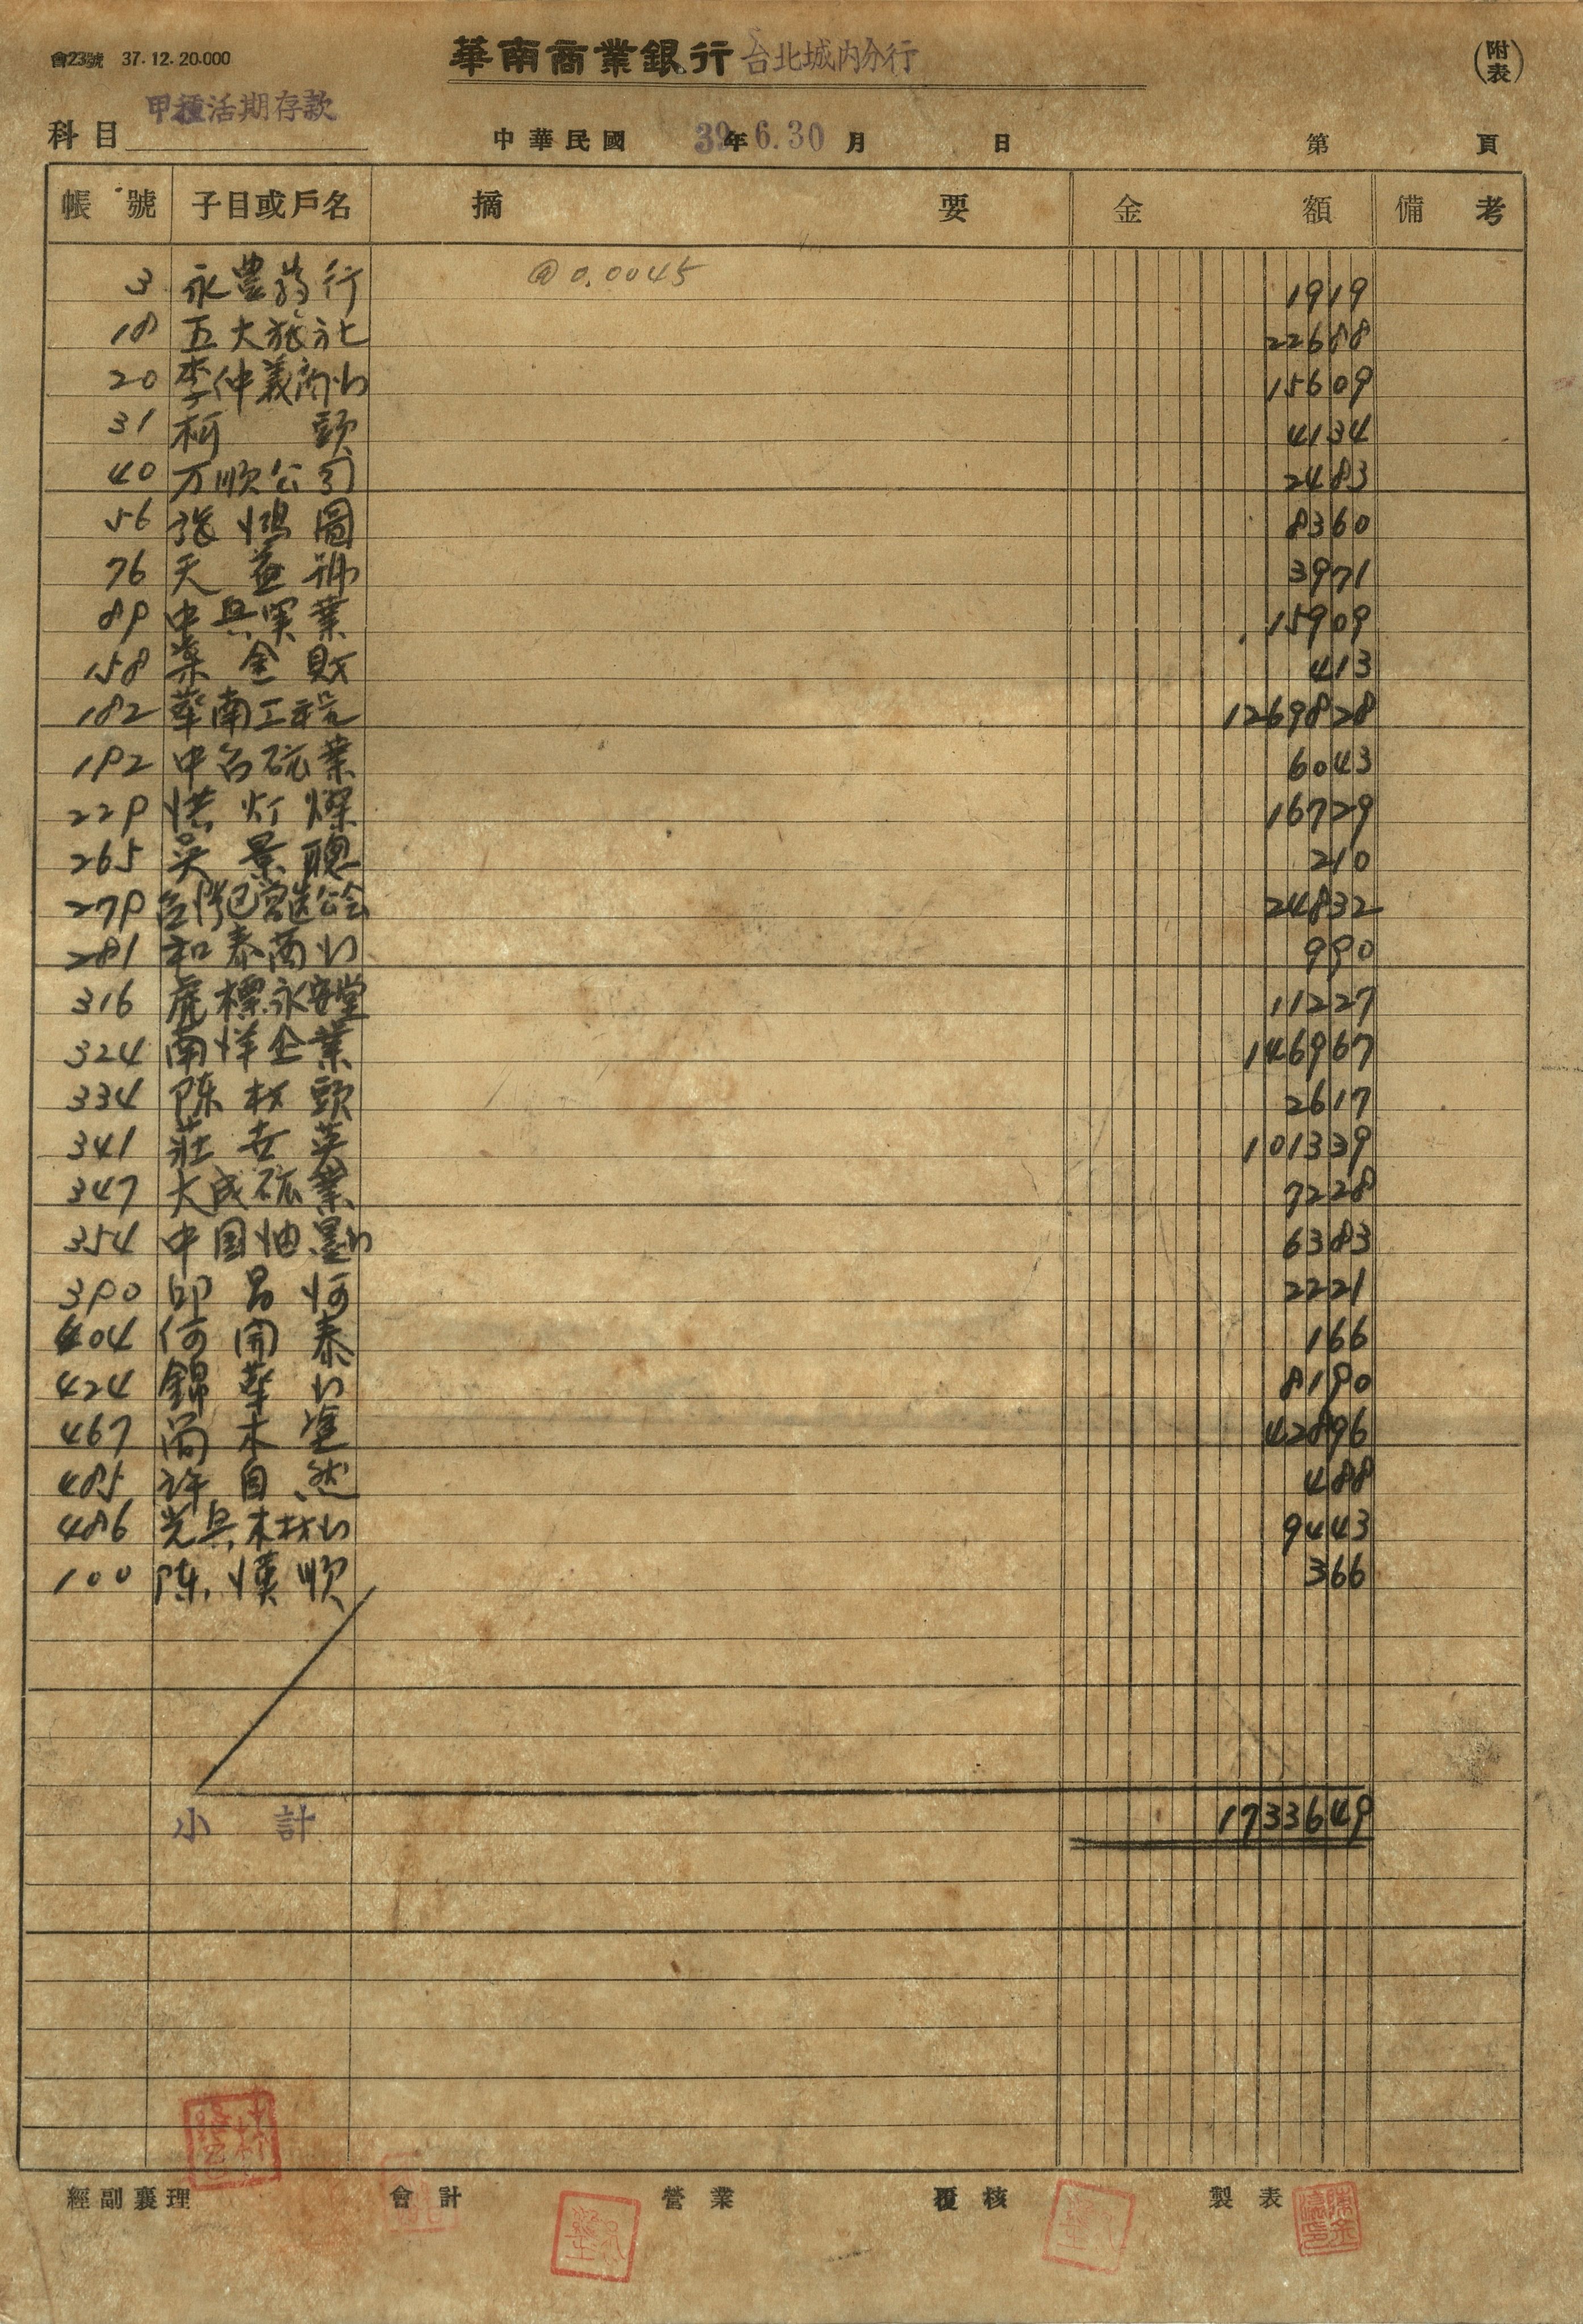 會23號 37.12.20.000
華南商業銀行 台北城内分行
(附表)
甲種活期存款
科目
中華民國 39年 6.30 月 日 第 頁
帳號 子目或戶名 摘要 金額 備考
3 永豊 行 @0.0045 1919
18 五大旅社 22688
20 李仲義商 15609
31 柯 頭 4134
40 万順公司 2483
56 張鴻圖 8360
76 天益號 3971
89 中興実業 15909
158 葉金 413
182 華南工程 1269828
192 中台硫業 6043
229 洪灯燦 16729
265 吳景聰 210
279 公会 24832
281 和泰商 990
316 虎標永安堂 11227
324 南洋企業 146967
334 陈 頭 2617
341 莊 英 101339
347 大成硫業 7228
354 中国油墨 6383
390 邱昌河 2221
404 何開泰 166
424 錦華 8190
467 木 42896
485 許自然 488
486 光興木材 9443
100 陈漢順 366
小計 1733649
經副襄理 會計 營業 覆核 製表